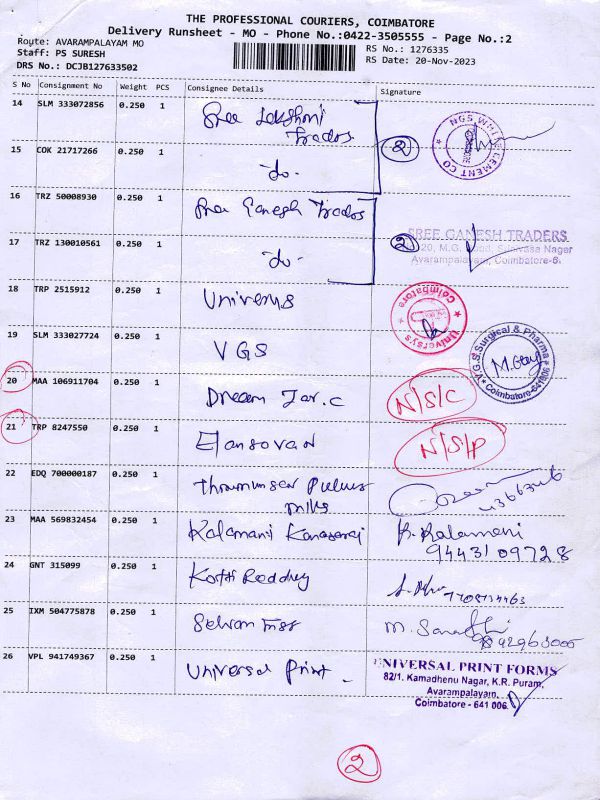 THE PROFESSIONAL COURIERS, COIMBATORE
Delivery Runsheet - MO - Phone No.:0422-3505555 - Page No.:2
Route: AVARAMPALAYAM MO
Staff: PS SURESH
DRS No.: DCJB127633502
RS No.: 1276335
RS Date: 20-Nov-2023
S No Consignment No Weight PCS Consignee Details Signature
14 SLM 333072856 0.250 1 Sree Lakshmi Trados
2
NGS CEMENT CO
15 COK 21717266 0.250 1 do.
16 TRZ 50008930 0.250 1 Sree Ganesh Trados
2
SREE GANESH TRADERS
20, M.G. Road, Nagar
Avarampalayam, Coimbatore-6.
17 TRZ 130010561 0.250 1 do.
18 TRP 2515912 0.250 1 Universys
Universys Coimbatore
19 SLM 333027724 0.250 1 VGS
V.G.S. Surgical & Pharma
Coimbatore-641006
20 MAA 106911704 0.250 1 Dream
N/S/C
21 TRP 8247550 0.250 1 Elansovan
N/S/P
22 EDQ 700000187 0.250 1
mills
23 MAA 569832454 0.250 1 Kalamani Kanasaraj
K. Kalamani
9443109728
24 GNT 315099 0.250 1 Kotti Reddy
25 IXM 504775878 0.250 1 Selvan
26 VPL 941749367 0.250 1 Universal Print.
UNIVERSAL PRINT FORMS
82/1, Kamadhenu Nagar, K.R. Puram,
Avarampalayam,
Coimbatore - 641 006.
2